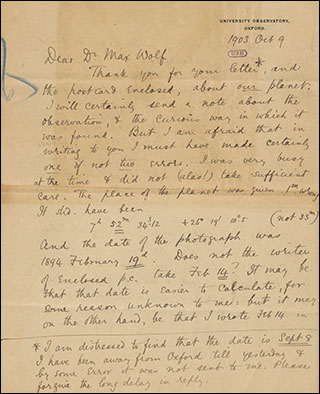 UNIVERSITY OBSERVATORY,
OXFORD.
1903 Oct 9
Dear Dr. Max Wolf
Thank you for your letter*, and
the postcard enclosed, about our planet.
I will certainly send a note about the
observation, & the curious way in which it
was found. But I am afraid that in
writing to you I must have made certainly
one if not two errors. I was very busy
at the time & did not (alas!) take sufficient
care. The place of the planet was given 1m wrong
It sd. have been
7h 52m 34s.12 +25° 19' 10".5 (not 53m)
And the date of the photograph was
1894 February 19d. Does not the writer
of enclosed p.c. take Feb 14? It may be
that that date is easier to calculate, for
some reason unknown to me: but it may
on the other hand, be that I wrote Feb 14 in
* I am distressed to find that the date is Sept 8
I have been away from Oxford till yesterday &
by some error it was not sent to me. Please
forgive the long delay in reply.